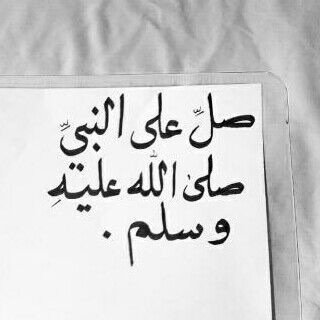 صلِّ على النبيِّ
صلى الله عليهِ
وسلم .